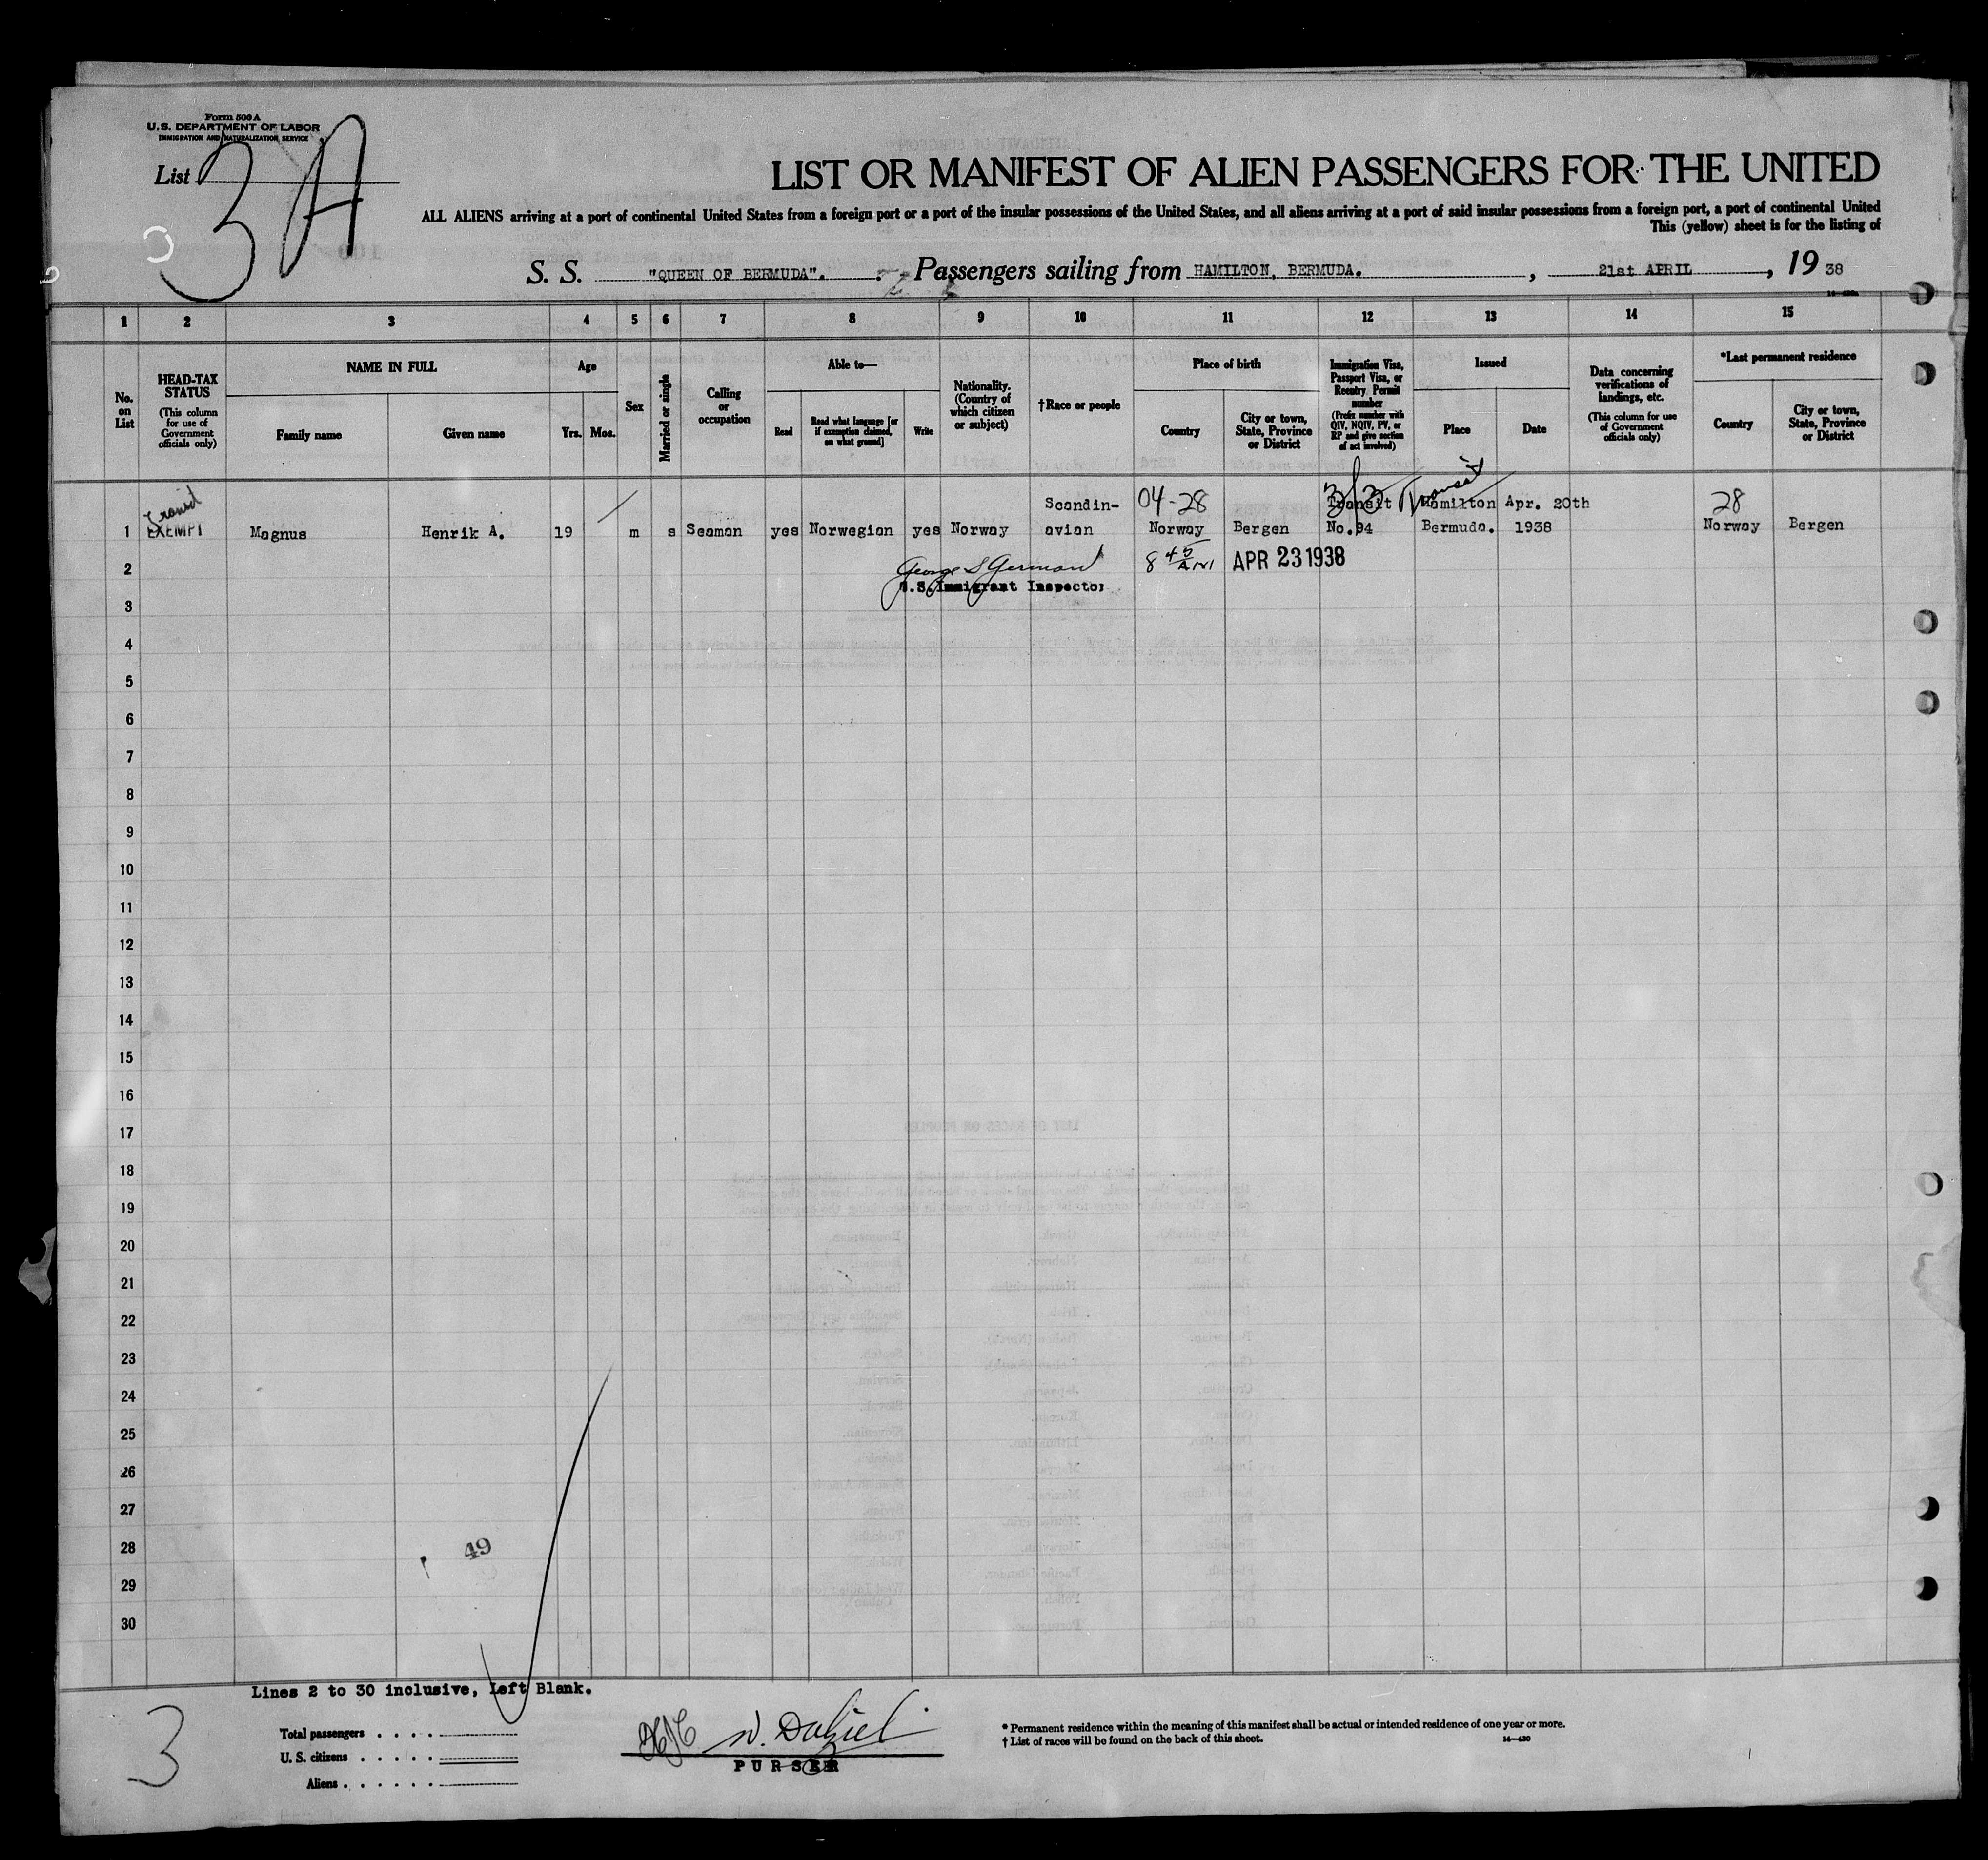 Form 500 A
U.S. DEPARTMENT OF LABOR
IMMIGRATION AND NATURALIZATION SERVICE
List 3A
LIST OR MANIFEST OF ALIEN PASSENGERS FOR THE UNITED
ALL ALIENS arriving at a port of continental United States from a foreign port or a port of the insular possessions of the United States, and all aliens arriving at a port of said insular possessions from a foreign port, a port of continental United
This (yellow) sheet is for the listing of
S. S. "QUEEN OF BERMUDA". Passengers sailing from HAMILTON, BERMUDA. , 21st APRIL , 19 38
1 2 3 4 5 6 7 8 9 10 11 12 13 14 15
No. on List
HEAD-TAX STATUS
(This column for use of Government officials only)
NAME IN FULL
Family name
Given name
Age
Yrs. Mos.
Sex
Married or single
Calling or occupation
Able to—
Read
Read what language [or if exemption claimed, on what ground]
Write
Nationality. (Country of which citizen or subject)
†Race or people
Place of birth
Country
City or town, State, Province or District
Immigration Visa, Passport Visa, or Reentry Permit number
(Prefix number with QIV, NQIV, PV, or RP and give section of act involved)
Issued
Place
Date
Data concerning verifications of landings, etc.
(This column for use of Government officials only)
*Last permanent residence
Country
City or town, State, Province or District
Transit Scandin- 04-28 3/3 Transit Transit Hamilton Apr. 20th 28
1 EXEMPT Magnus Henrik A. 19 m s Seaman yes Norwegian yes Norway avian Norway Bergen No.94 Bermuda. 1938 Norway Bergen
2 George S Germond 8 45 AM APR 23 1938
U.S. Immigrant Inspector
3
4
5
6
7
8
9
10
11
12
13
14
15
16
17
18
19
20
21
22
23
24
25
26
27
28 49
29
30
Lines 2 to 30 inclusive, Left Blank.
3
Total passengers . . . .
U. S. citizens . . . . .
Aliens . . . . . .
W. Dalziel
PURSER
* Permanent residence within the meaning of this manifest shall be actual or intended residence of one year or more.
† List of races will be found on the back of this sheet.
14—430